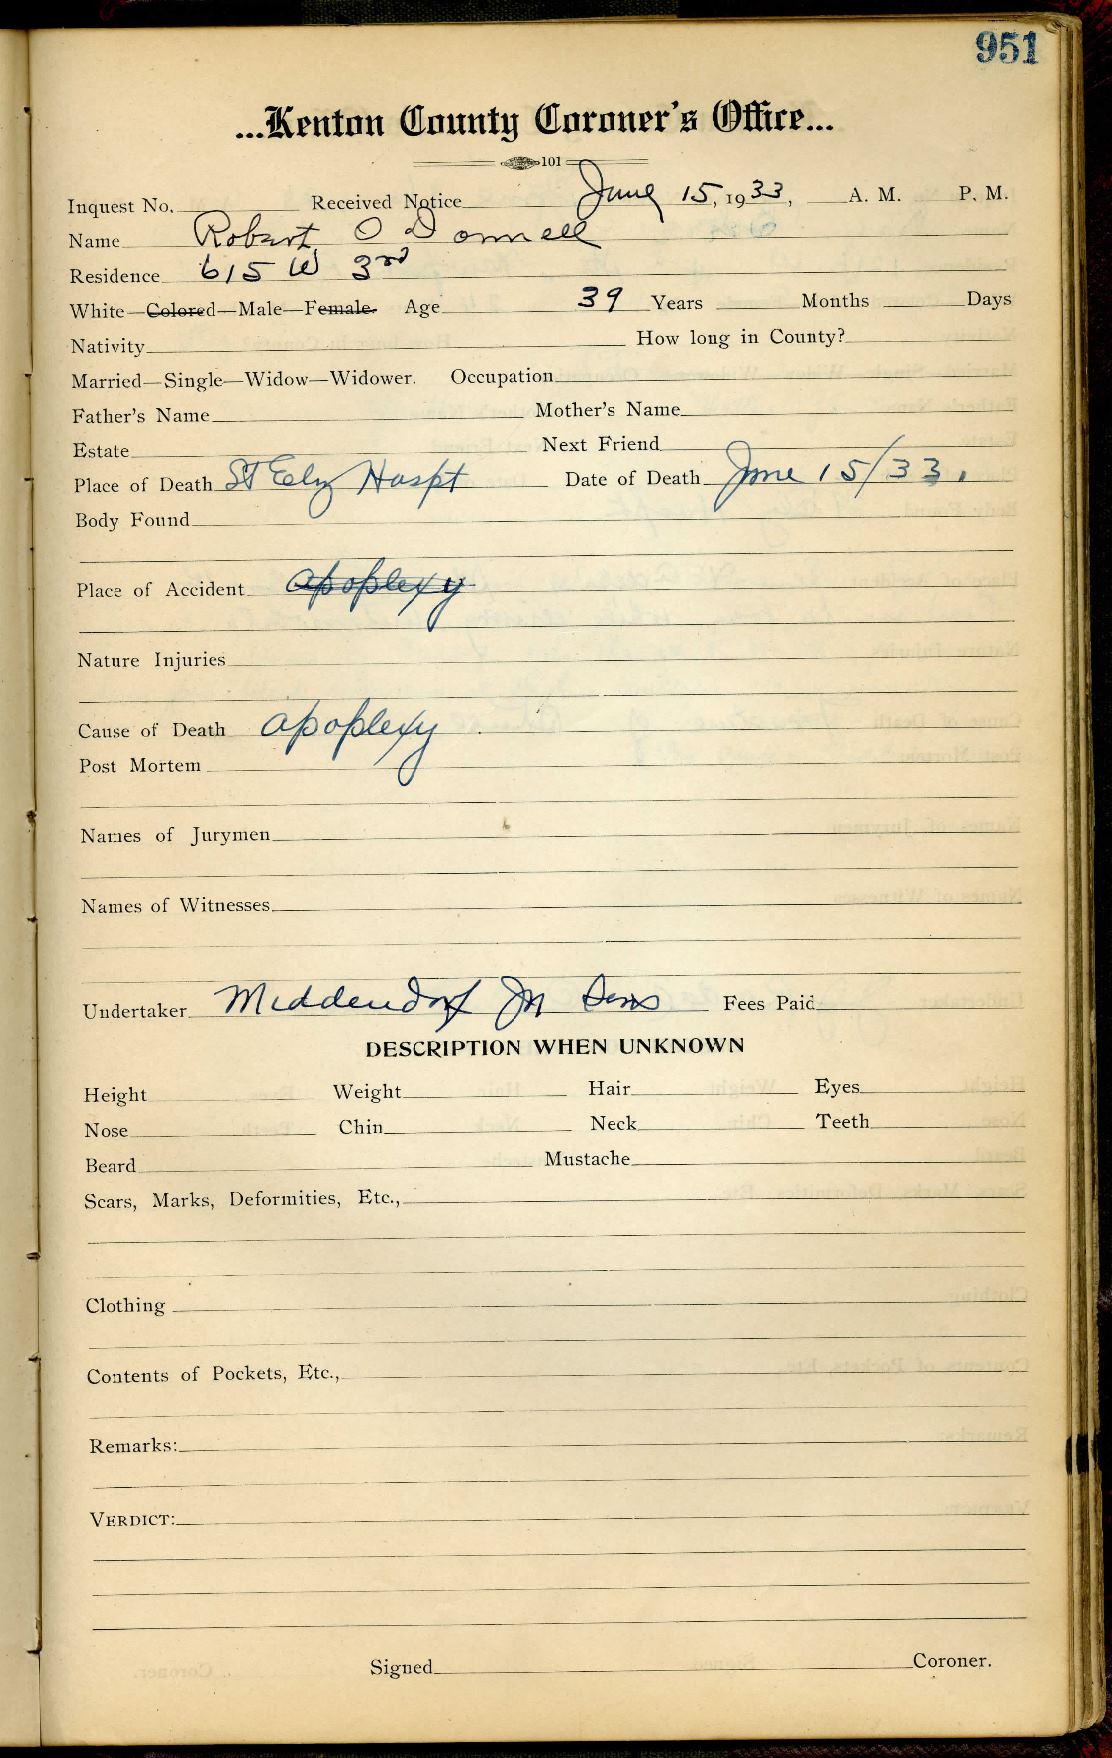 951
...Kenton County Coroner's Office...
101
Inquest No. Received Notice June 15, 1933, A. M. P. M.
Name Robert O Donnell
Residence 615 W 3rd
White—Colored—Male—Female. Age 39 Years Months Days
Nativity How long in County?
Married—Single—Widow—Widower. Occupation
Father's Name Mother's Name
Estate Next Friend
Place of Death St Eliz Hospt Date of Death June 15/33.
Body Found
Place of Accident apoplexy
Nature Injuries
Cause of Death apoplexy
Post Mortem
Names of Jurymen
Names of Witnesses
Undertaker Middendorf Sons Fees Paid
DESCRIPTION WHEN UNKNOWN
Height Weight Hair Eyes
Nose Chin Neck Teeth
Beard Mustache
Scars, Marks, Deformities, Etc.,
Clothing
Contents of Pockets, Etc.,
Remarks:
VERDICT:
Signed Coroner.